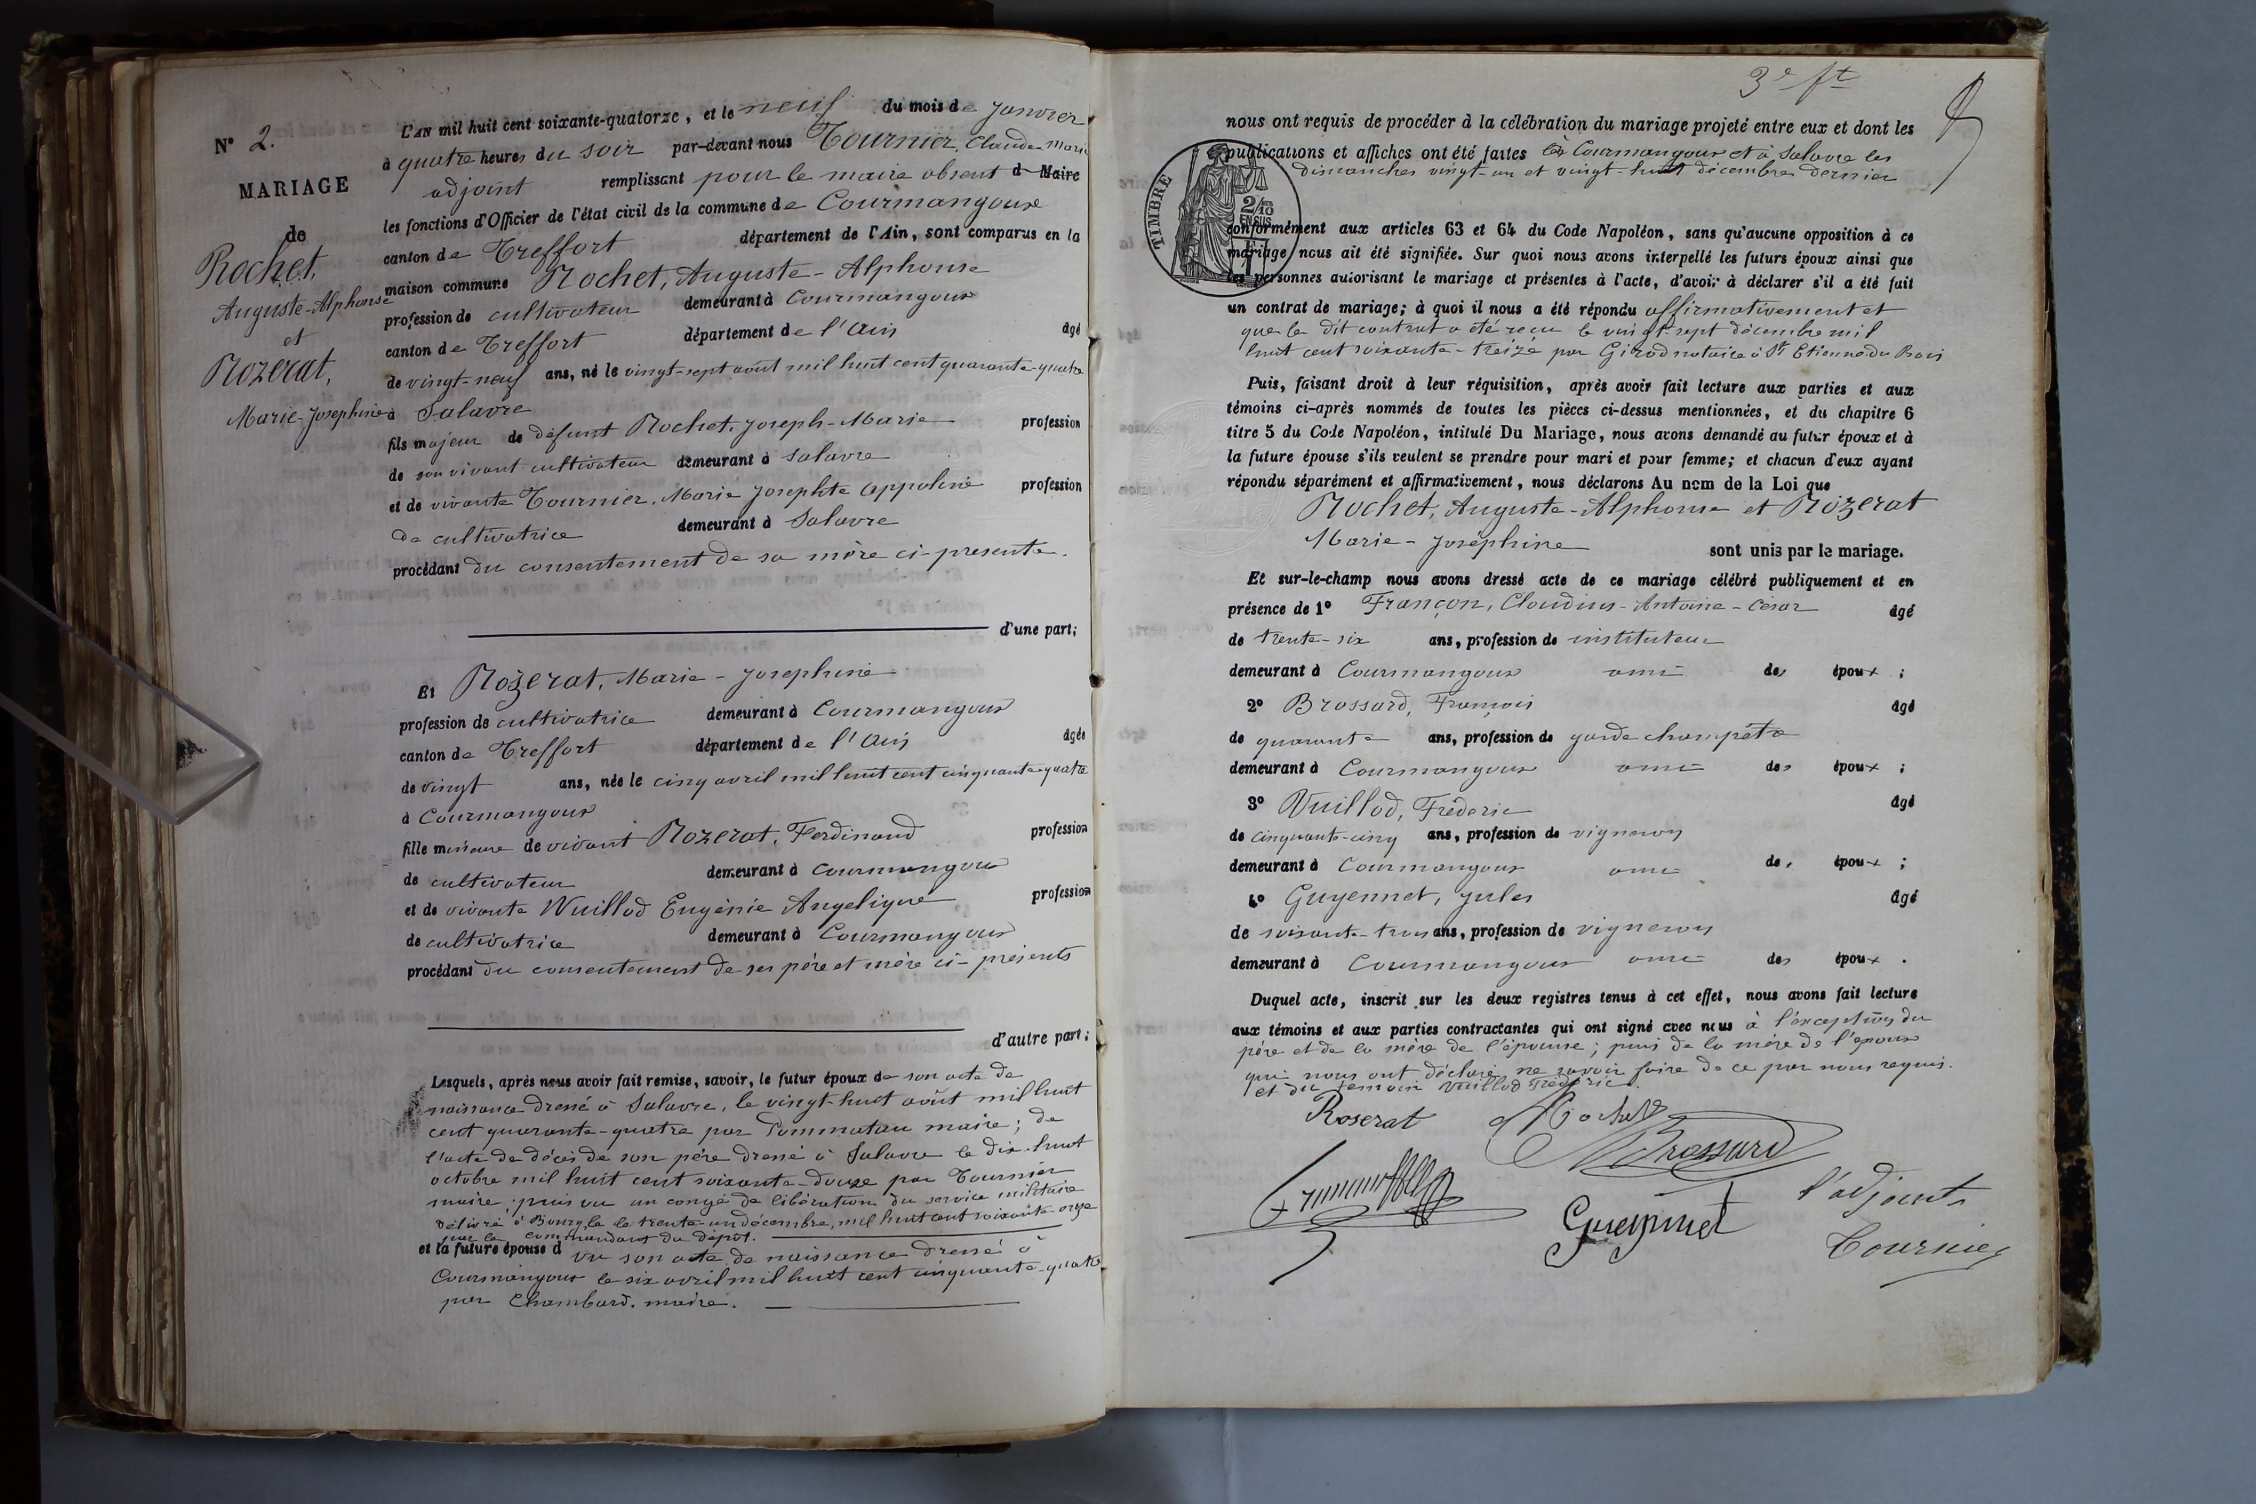 N° 2.
MARIAGE
de
Rochet,
Auguste-Alphonse
et
Rozerat,
Marie-Josephine
L'AN mil huit cent soixante-quatorze, et le neuf du mois de Janvier
à quatre heures du soir par-devant nous Tournier, Claude Marie
adjoint remplissant pour le maire absent d Maire
les fonctions d'Officier de l'état civil de la commune de Courmangoux
canton de Treffort département de l'Ain, sont comparus en la
maison commune Rochet, Auguste-Alphonse
profession de cultivateur demeurant à Courmangoux
canton de Treffort département de l'Ain âgé
de vingt-neuf ans, né le vingt-sept août mil huit cent quarante-quatre
à Salavre
fils majeur de défunt Rochet, Joseph-Marie profession
de son vivant cultivateur demeurant à Salavre
et de vivante Tournier, Marie Josephte Appoline profession
de cultivatrice demeurant à Salavre
procédant du consentement de sa mère ci-presente.
d'une part;
Et Rozerat, Marie-Josephine
profession de cultivatrice demeurant à Courmangoux
canton de Treffort département de l'Ain âgée
de vingt ans, née le cinq avril mil huit cent cinquante-quatre
à Courmangoux
fille mineure de vivant Rozerat, Ferdinand profession
de cultivateur demeurant à Courmangoux
et de vivante Wuillod Eugénie Angelique profession
de cultivatrice demeurant à Courmangoux
procédant du consentement de ses père et mère ci-présents
d'autre part;
Lesquels, après nous avoir fait remise, savoir, le futur époux de son acte de
naissance dressé à Salavre, le vingt-huit août mil huit
cent quarante-quatre par Pommatau maire; de
l'acte de décès de son père dressé à Salavre le dix-huit
octobre mil huit cent soixante-douze par Tournier
maire; puis vu un congé de libération du service militaire
délivré à Bourg, le trente-un décembre, mil huit cent soixante-onze
par le commandant du dépôt.
et la future épouse d vu son acte de naissance dressé à
Courmangoux le six avril mil huit cent cinquante-quatre
par Chambard, maire.
3e ft
nous ont requis de procéder à la célébration du mariage projeté entre eux et dont les
publications et affiches ont été faites à Courmangoux et à Salavre les
dimanches vingt-un et vingt-huit décembre dernier
TIMBRE
2/10
EN SUS
conformément aux articles 63 et 64 du Code Napoléon, sans qu'aucune opposition à ce
mariage nous ait été signifiée. Sur quoi nous avons interpellé les futurs époux ainsi que
les personnes autorisant le mariage et présentes à l'acte, d'avoir à déclarer s'il a été fait
un contrat de mariage; à quoi il nous a été répondu affirmativement et
que le dit contrat a été reçu le vingt-sept décembre mil
huit cent soixante-treize par Girod notaire à St Etienne du Bois
Puis, faisant droit à leur réquisition, après avoir fait lecture aux parties et aux
témoins ci-après nommés de toutes les pièces ci-dessus mentionnées, et du chapitre 6
titre 5 du Code Napoléon, intitulé Du Mariage, nous avons demandé au futur époux et à
la future épouse s'ils veulent se prendre pour mari et pour femme; et chacun d'eux ayant
répondu séparément et affirmativement, nous déclarons Au nom de la Loi que
Rochet, Auguste-Alphonse et Rozerat
Marie-Joséphine sont unis par le mariage.
Et sur-le-champ nous avons dressé acte de ce mariage célébré publiquement et en
présence de 1° Françon, Claudius-Antoine-César âgé
de trente-six ans, profession de instituteur
demeurant à Courmangoux ami des époux;
2° Brossard, François âgé
de quarante ans, profession de garde champête
demeurant à Courmangoux ami des époux;
3° Vuillod, Fréderic âgé
de cinquante-cinq ans, profession de vigneron
demeurant à Courmangoux ami des époux;
4° Guyennet, Jules âgé
de soixante-trois ans, profession de vigneron
demeurant à Courmangoux ami des époux.
Duquel acte, inscrit sur les deux registres tenus à cet effet, nous avons fait lecture
aux témoins et aux parties contractantes qui ont signé avec nous à l'exception du
père et de la mère de l'épouse; puis de la mère de l'époux
qui nous ont déclaré ne savoir faire de ce par nous requis.
et du témoin Vuillod Fréderic.
Roserat Rochet
Brossard
l'adjoint
Gueynnet
Tournier